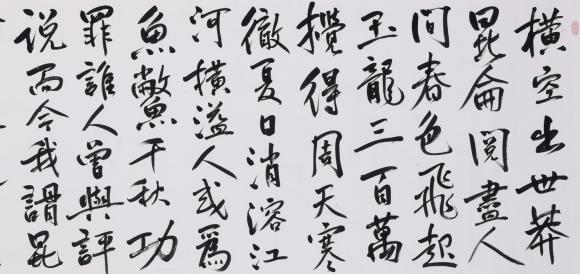 橫空出世莽
昆侖閱盡人
間春色飛起
玉龍三百萬
攪得周天寒
徹夏日消溶江
河橫溢人或爲
魚鱉千秋功
罪誰人曾與評
説而今我謂昆